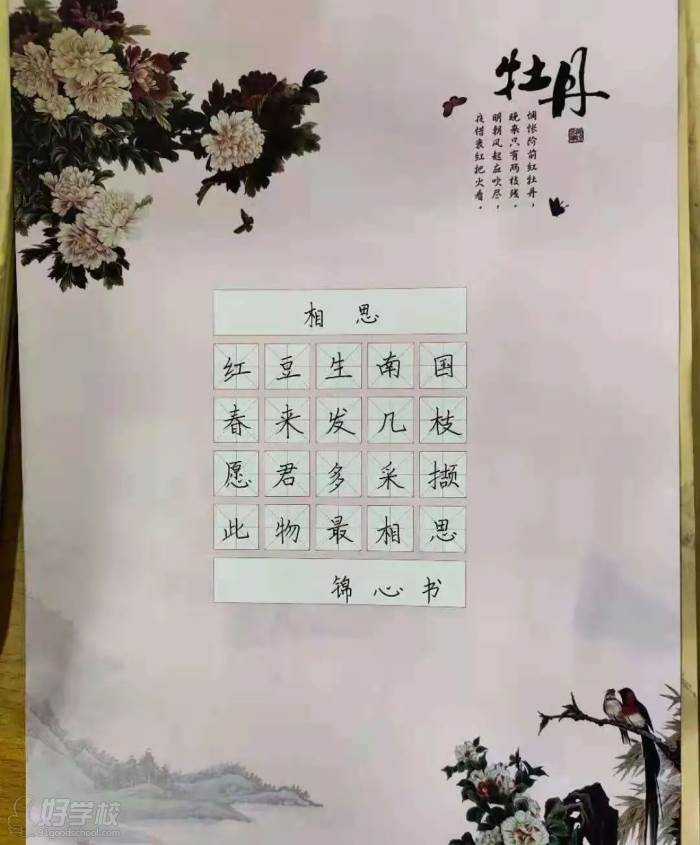 牡丹
惆怅阶前红牡丹，
晚来只有两枝残。
明朝风起应吹尽，
夜惜衰红把火看。
相思
红豆生南国
春来发几枝
愿君多采撷
此物最相思
锦心书
好学校
91goodschool.com